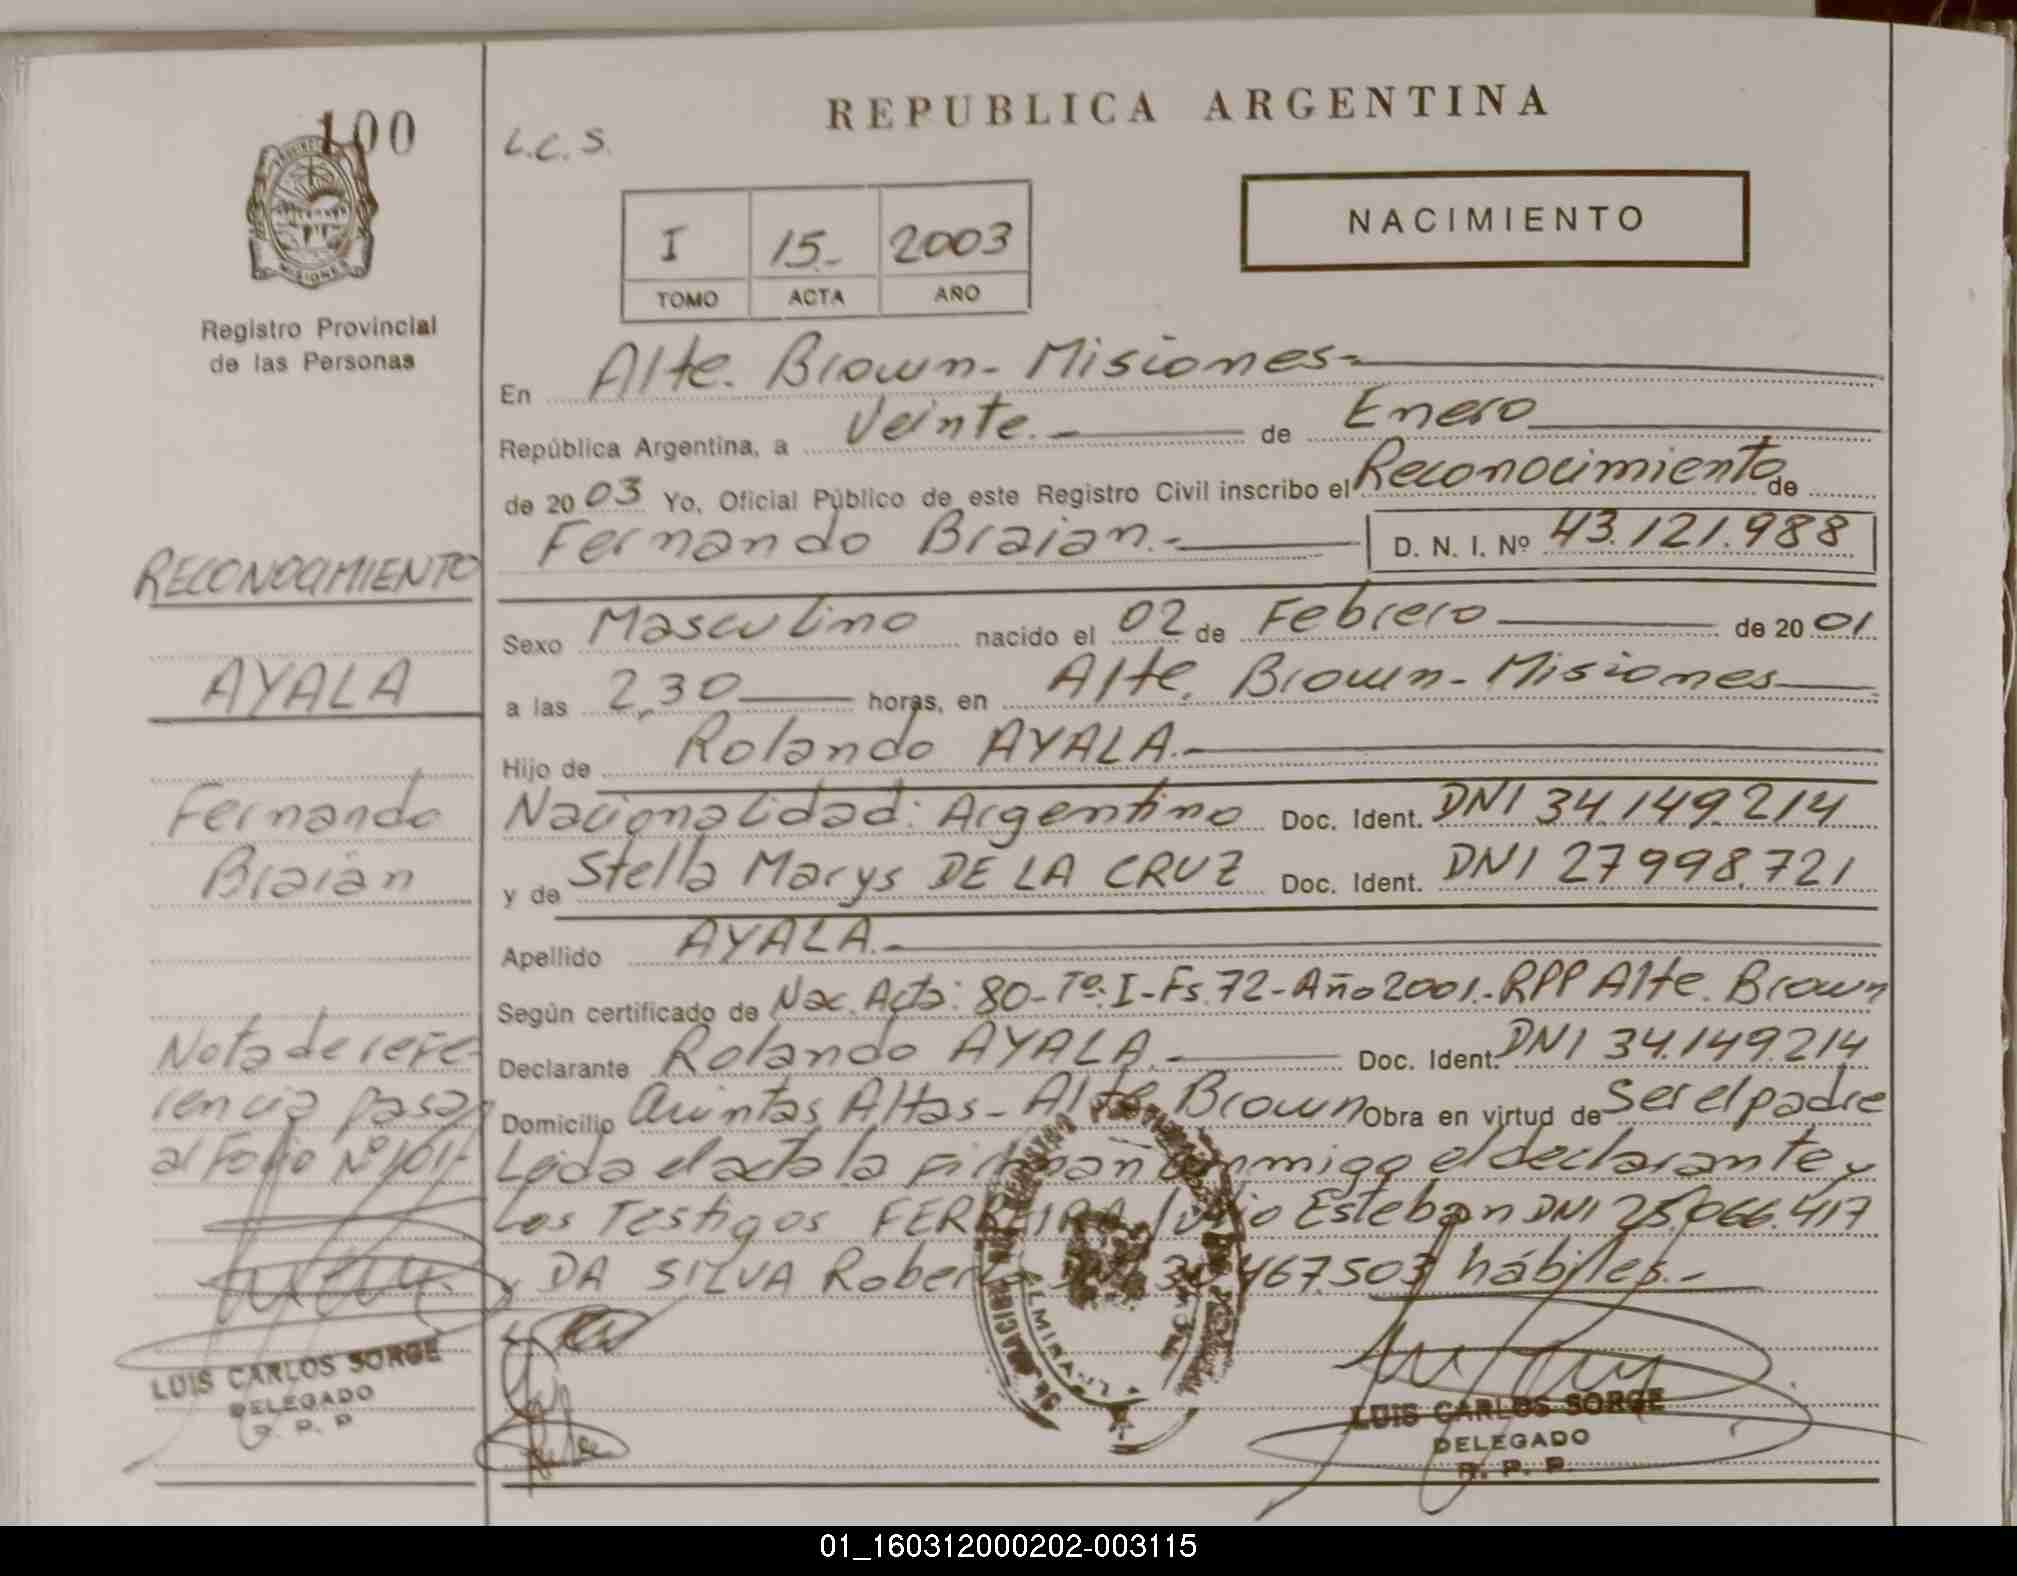 REPUBLICA ARGENTINA
100
L.C.S.
NACIMIENTO
I 15.- 2003
TOMO ACTA AÑO
MISIONES
Registro Provincial
de las Personas
En Alte. Brown - Misiones-
República Argentina, a Veinte.- de Enero
de 2003 Yo, Oficial Público de este Registro Civil inscribo el Reconocimiento de
Fernando Braian.- D. N. I. Nº 43.121.988
Sexo Masculino nacido el 02 de Febrero de 2001
a las 2,30 horas, en Alte. Brown - Misiones
Hijo de Rolando AYALA.-
Nacionalidad: Argentino Doc. Ident. DNI 34.149.214
y de Stella Marys DE LA CRUZ Doc. Ident. DNI 27.998.721
Apellido AYALA.-
Según certificado de Nac. Acta: 80-Tº.I-Fs.72-Año 2001.-RPP Alte. Brown
Declarante Rolando AYALA.- Doc. Ident. DNI 34.149.214
Domicilio Quintas Altas - Alte Brown Obra en virtud de Ser el padre
Leida el acta la firman conmigo el declarante y
Los Testigos FERREIRA Julio Esteban DNI 25.066.417
y DA SILVA Roberto 467.503 hábiles.-
LUIS CARLOS SORGE
DELEGADO
R. P. P.
RECONOCIMIENTO
AYALA
Fernando
Braian
Nota de refe-
rencia pasa
al Folio Nº 101.-
LUIS CARLOS SORGE
DELEGADO
R. P. P
01_160312000202-003115